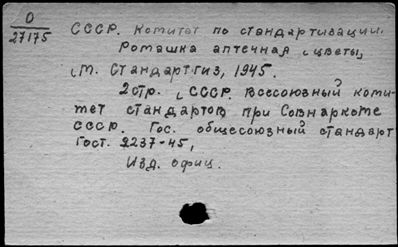 О
27175
СССР. Комитет по стандартизации.
Ромашка аптечная (цветы)
М. Стандартгиз, 1945.
2стр. (СССР. Всесоюзный коми-
тет стандартов при Совнаркоме
СССР. Гос. общесоюзный стандарт
Гост. 2237-45)
Изд. офиц.